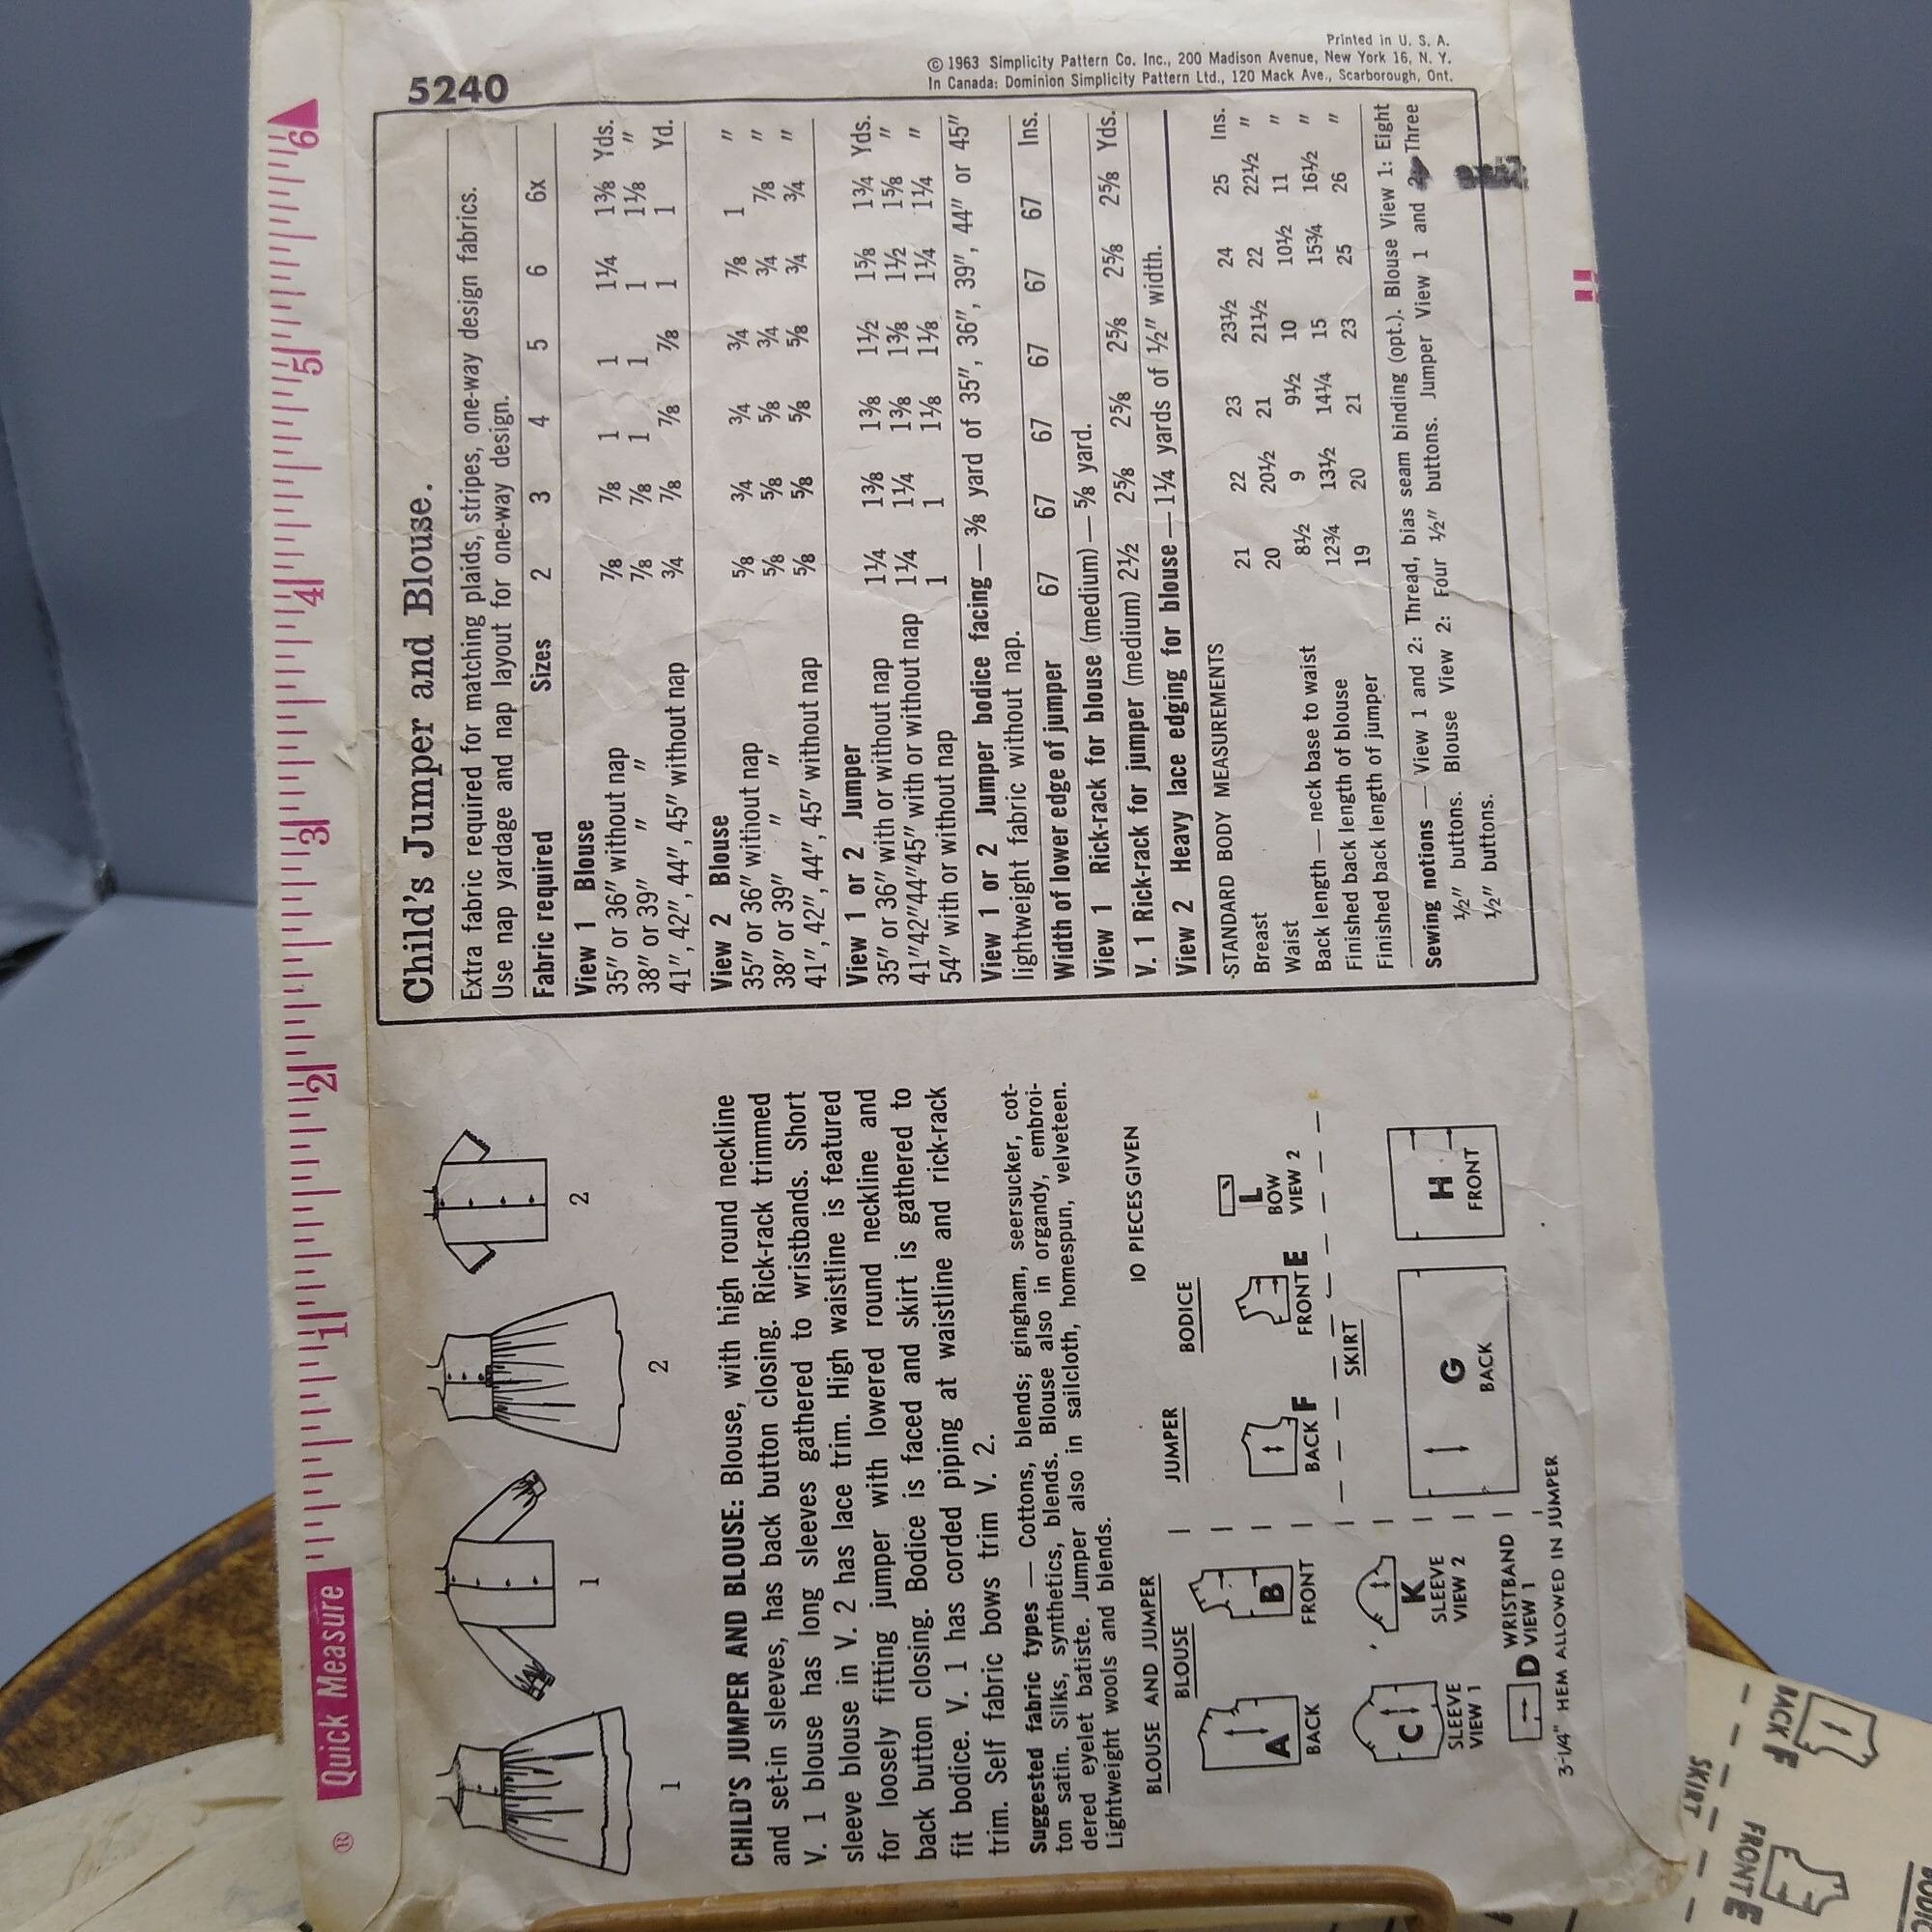 ® Quick Measure 1 2 3 4 5 6
5240
© 1963 Simplicity Pattern Co. Inc., 200 Madison Avenue, New York 16, N. Y.
Printed in U. S. A.
In Canada: Dominion Simplicity Pattern Ltd., 120 Mack Ave., Scarborough, Ont.
1
1
2
2
CHILD'S JUMPER AND BLOUSE: Blouse, with high round neckline
and set-in sleeves, has back button closing. Rick-rack trimmed
V. 1 blouse has long sleeves gathered to wristbands. Short
sleeve blouse in V. 2 has lace trim. High waistline is featured
for loosely fitting jumper with lowered round neckline and
back button closing. Bodice is faced and skirt is gathered to
fit bodice. V. 1 has corded piping at waistline and rick-rack
trim. Self fabric bows trim V. 2.
Suggested fabric types — Cottons, blends; gingham, seersucker, cot-
ton satin. Silks, synthetics, blends. Blouse also in organdy, embroi-
dered eyelet batiste. Jumper also in sailcloth, homespun, velveteen.
Lightweight wools and blends.
10 PIECES GIVEN
BLOUSE AND JUMPER
BLOUSE
JUMPER
BODICE
A
BACK
B
FRONT
BACK F
FRONT E
L
BOW
VIEW 2
SKIRT
C
SLEEVE
VIEW 1
K
SLEEVE
VIEW 2
G
BACK
H
FRONT
D WRISTBAND
VIEW 1
3-1/4" HEM ALLOWED IN JUMPER
Child's Jumper and Blouse.
Extra fabric required for matching plaids, stripes, one-way design fabrics.
Use nap yardage and nap layout for one-way design.
Fabric required Sizes 2 3 4 5 6 6x
View 1 Blouse
35" or 36" without nap 7/8 7/8 1 1 1¼ 1⅜ Yds.
38" or 39" " " 7/8 7/8 1 1 1 1⅛ "
41", 42", 44", 45" without nap ¾ 7/8 7/8 7/8 1 1 Yd.
View 2 Blouse
35" or 36" without nap ⅝ ¾ ¾ ¾ 7/8 1 "
38" or 39" " " ⅝ ⅝ ⅝ ¾ ¾ 7/8 "
41", 42", 44", 45" without nap ⅝ ⅝ ⅝ ⅝ ¾ ¾ "
View 1 or 2 Jumper
35" or 36" with or without nap 1¼ 1⅜ 1⅜ 1½ 1⅝ 1¾ Yds.
41"42"44"45" with or without nap 1¼ 1¼ 1⅜ 1⅜ 1½ 1⅝ "
54" with or without nap 1 1 1⅛ 1⅛ 1¼ 1¼ "
View 1 or 2 Jumper bodice facing — ⅜ yard of 35", 36", 39", 44" or 45"
lightweight fabric without nap.
Width of lower edge of jumper 67 67 67 67 67 67 Ins.
View 1 Rick-rack for blouse (medium) — ⅝ yard.
V. 1 Rick-rack for jumper (medium) 2½ 2⅝ 2⅝ 2⅝ 2⅝ 2⅝ Yds.
View 2 Heavy lace edging for blouse — 1¼ yards of ½" width.
STANDARD BODY MEASUREMENTS
Breast 21 22 23 23½ 24 25 Ins.
Waist 20 20½ 21 21½ 22 22½ "
Back length — neck base to waist 8½ 9 9½ 10 10½ 11 "
Finished back length of blouse 12¾ 13½ 14¼ 15 15¾ 16½ "
Finished back length of jumper 19 20 21 23 25 26 "
Sewing notions — View 1 and 2: Thread, bias seam binding (opt.). Blouse View 1: Eight
½" buttons. Blouse View 2: Four ½" buttons. Jumper View 1 and 2: Three
½" buttons.
SKIRT
BACK F
FRONT E